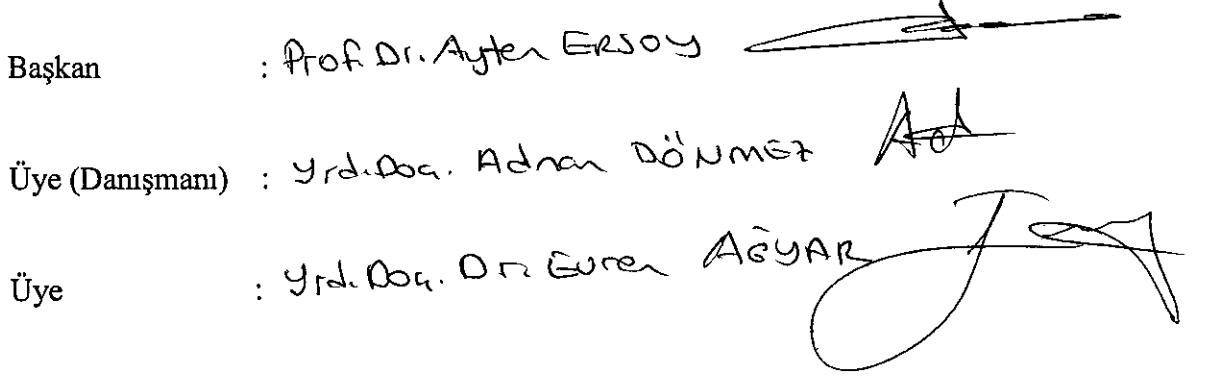 Başkan : Prof. Dr. Ayten ERSOY
Üye (Danışmanı) : Yrd. Doç. Adnan DÖNMEZ
Üye : Yrd. Doç. Dr. Evren AĞYAR